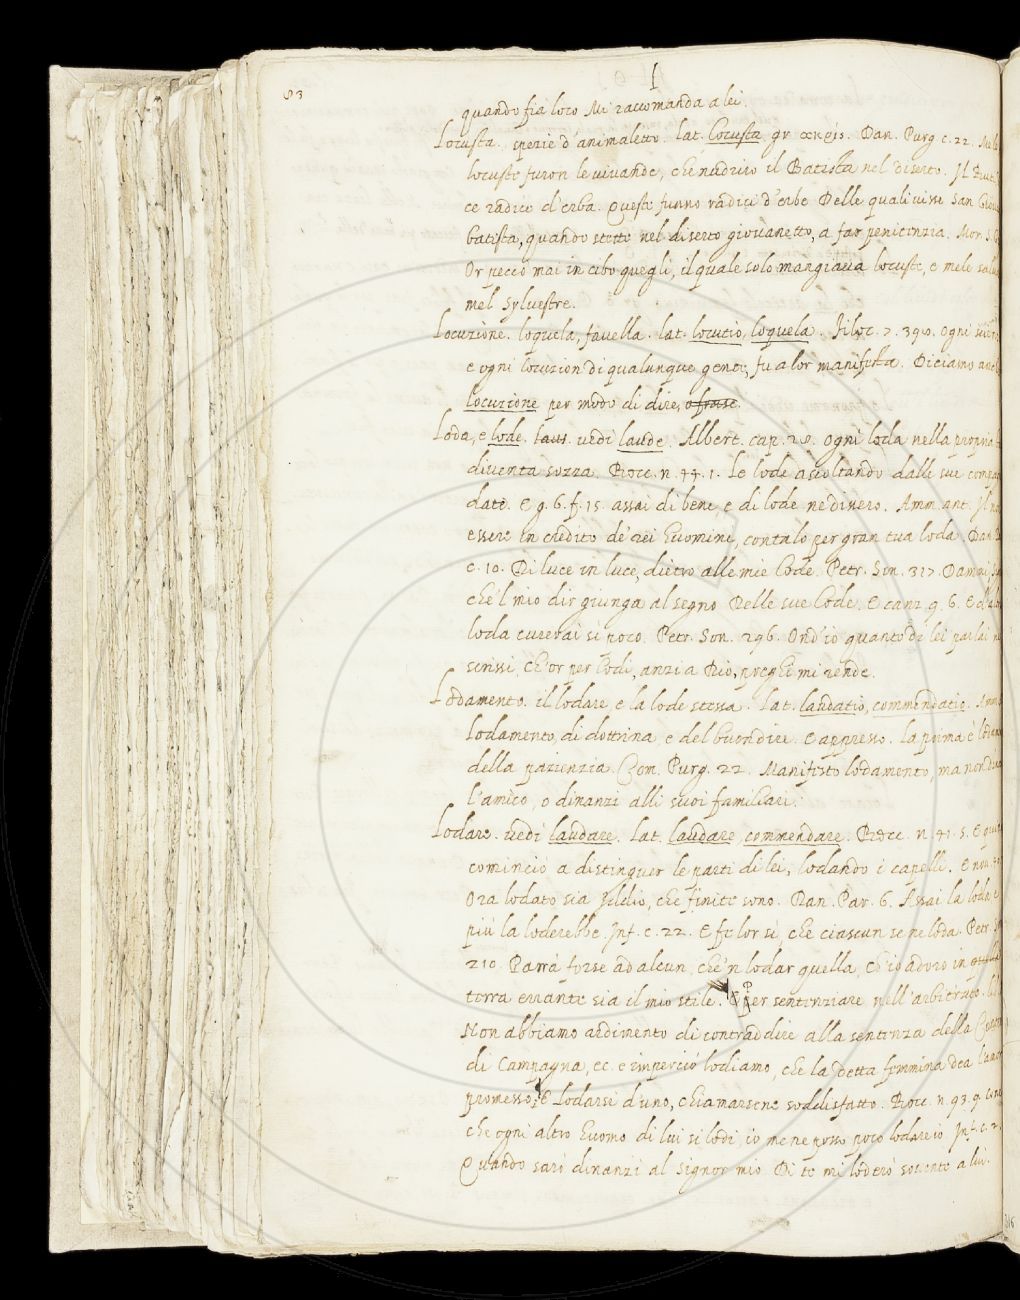 83
L
quando fia loco Mi raccomanda a lei.
Locusta. spezie d'animaletto. lat. Locusta gr ἀκρίς. Dan. Purg c. 22. Mele
locuste furon le vivande, che nudriro il Batista nel diserto. Il
ce radice d'erba. Queste furono radici d'erbe Delle quali visse San
batista, quando stette nel diserto giovanetto, a far penitenzia. Mor. S.
Or peccò mai in cibo quegli, il quale solo mangiava locuste, e mele
mel sylvestre.
Locuzione. loquela, favella. lat. locutio, loquela. Filoc. 7. 390. ogni
e ogni locuzion di qualunque gente, fu a lor manifesta. Diciamo
locuzione per modo di dire, o frase.
Loda, e lode. laus. vedi laude. Albert. cap. 28. ogni loda nella propria
diventa sozza. Bocc. n. 44. 1. Le lode ascoltando dalle sue
date. E g. 6. f. 15. assai di bene, e di lode ne dissero. Amm. ant. Il
essere in credito de' rei huomini, contalo per gran tua loda. Dan.
c. 10. Di luce in luce, dietro alle mie lode. Petr. Son. 317. Dammi
che 'l mio dir giunga al segno Delle sue lode. E canz. g. 6. E
loda curerai si poco. Petr. Son. 296. Ond'io quanto di lei parlai
scrissi, Ch'or per lodi, anzi a Dio, preghi mi rende.
Lodamento. il lodare, e la lode stessa. Lat. laudatio, commendatio.
lodamento, di dottrina, e del buondire. E appresso. la prima è
della pazienzia. Com. Purg. 22. Manifesto lodamento, ma non
l'amico, o dinanzi alli suoi familiari.
Lodare. vedi laudare. Lat. laudare commendare. Bocc. n. 41. 5. E
cominciò a distinguer le parti di lei, lodando i capelli. E
Ora lodato sia Iddio, che finite sono. Dan. Par. 6. Assai la loda e
più la loderebbe. Inf. c. 22. E fe lor sì, che ciascun se ne loda. Petr.
210. Parrà forse ad alcun, che 'n lodar quella, Ch'io adoro in
terra errante sia il mio stile. E per sentenziare nell'arbitrato.
Non abbiamo ardimento di contraddire alla sentenza della
di Campagna, ec. e imperciò lodiamo, che la detta femmina dea
promesso. E Lodarsi d'uno, chiamarsene soddisfatto. Bocc. n. 93. 9.
che ogni altro huomo di lui si lodi, io me ne posso poco lodare io Inf. c. 2.
Quando sarò dinanzi al signor mio Di te mi loderò sovente a lui.